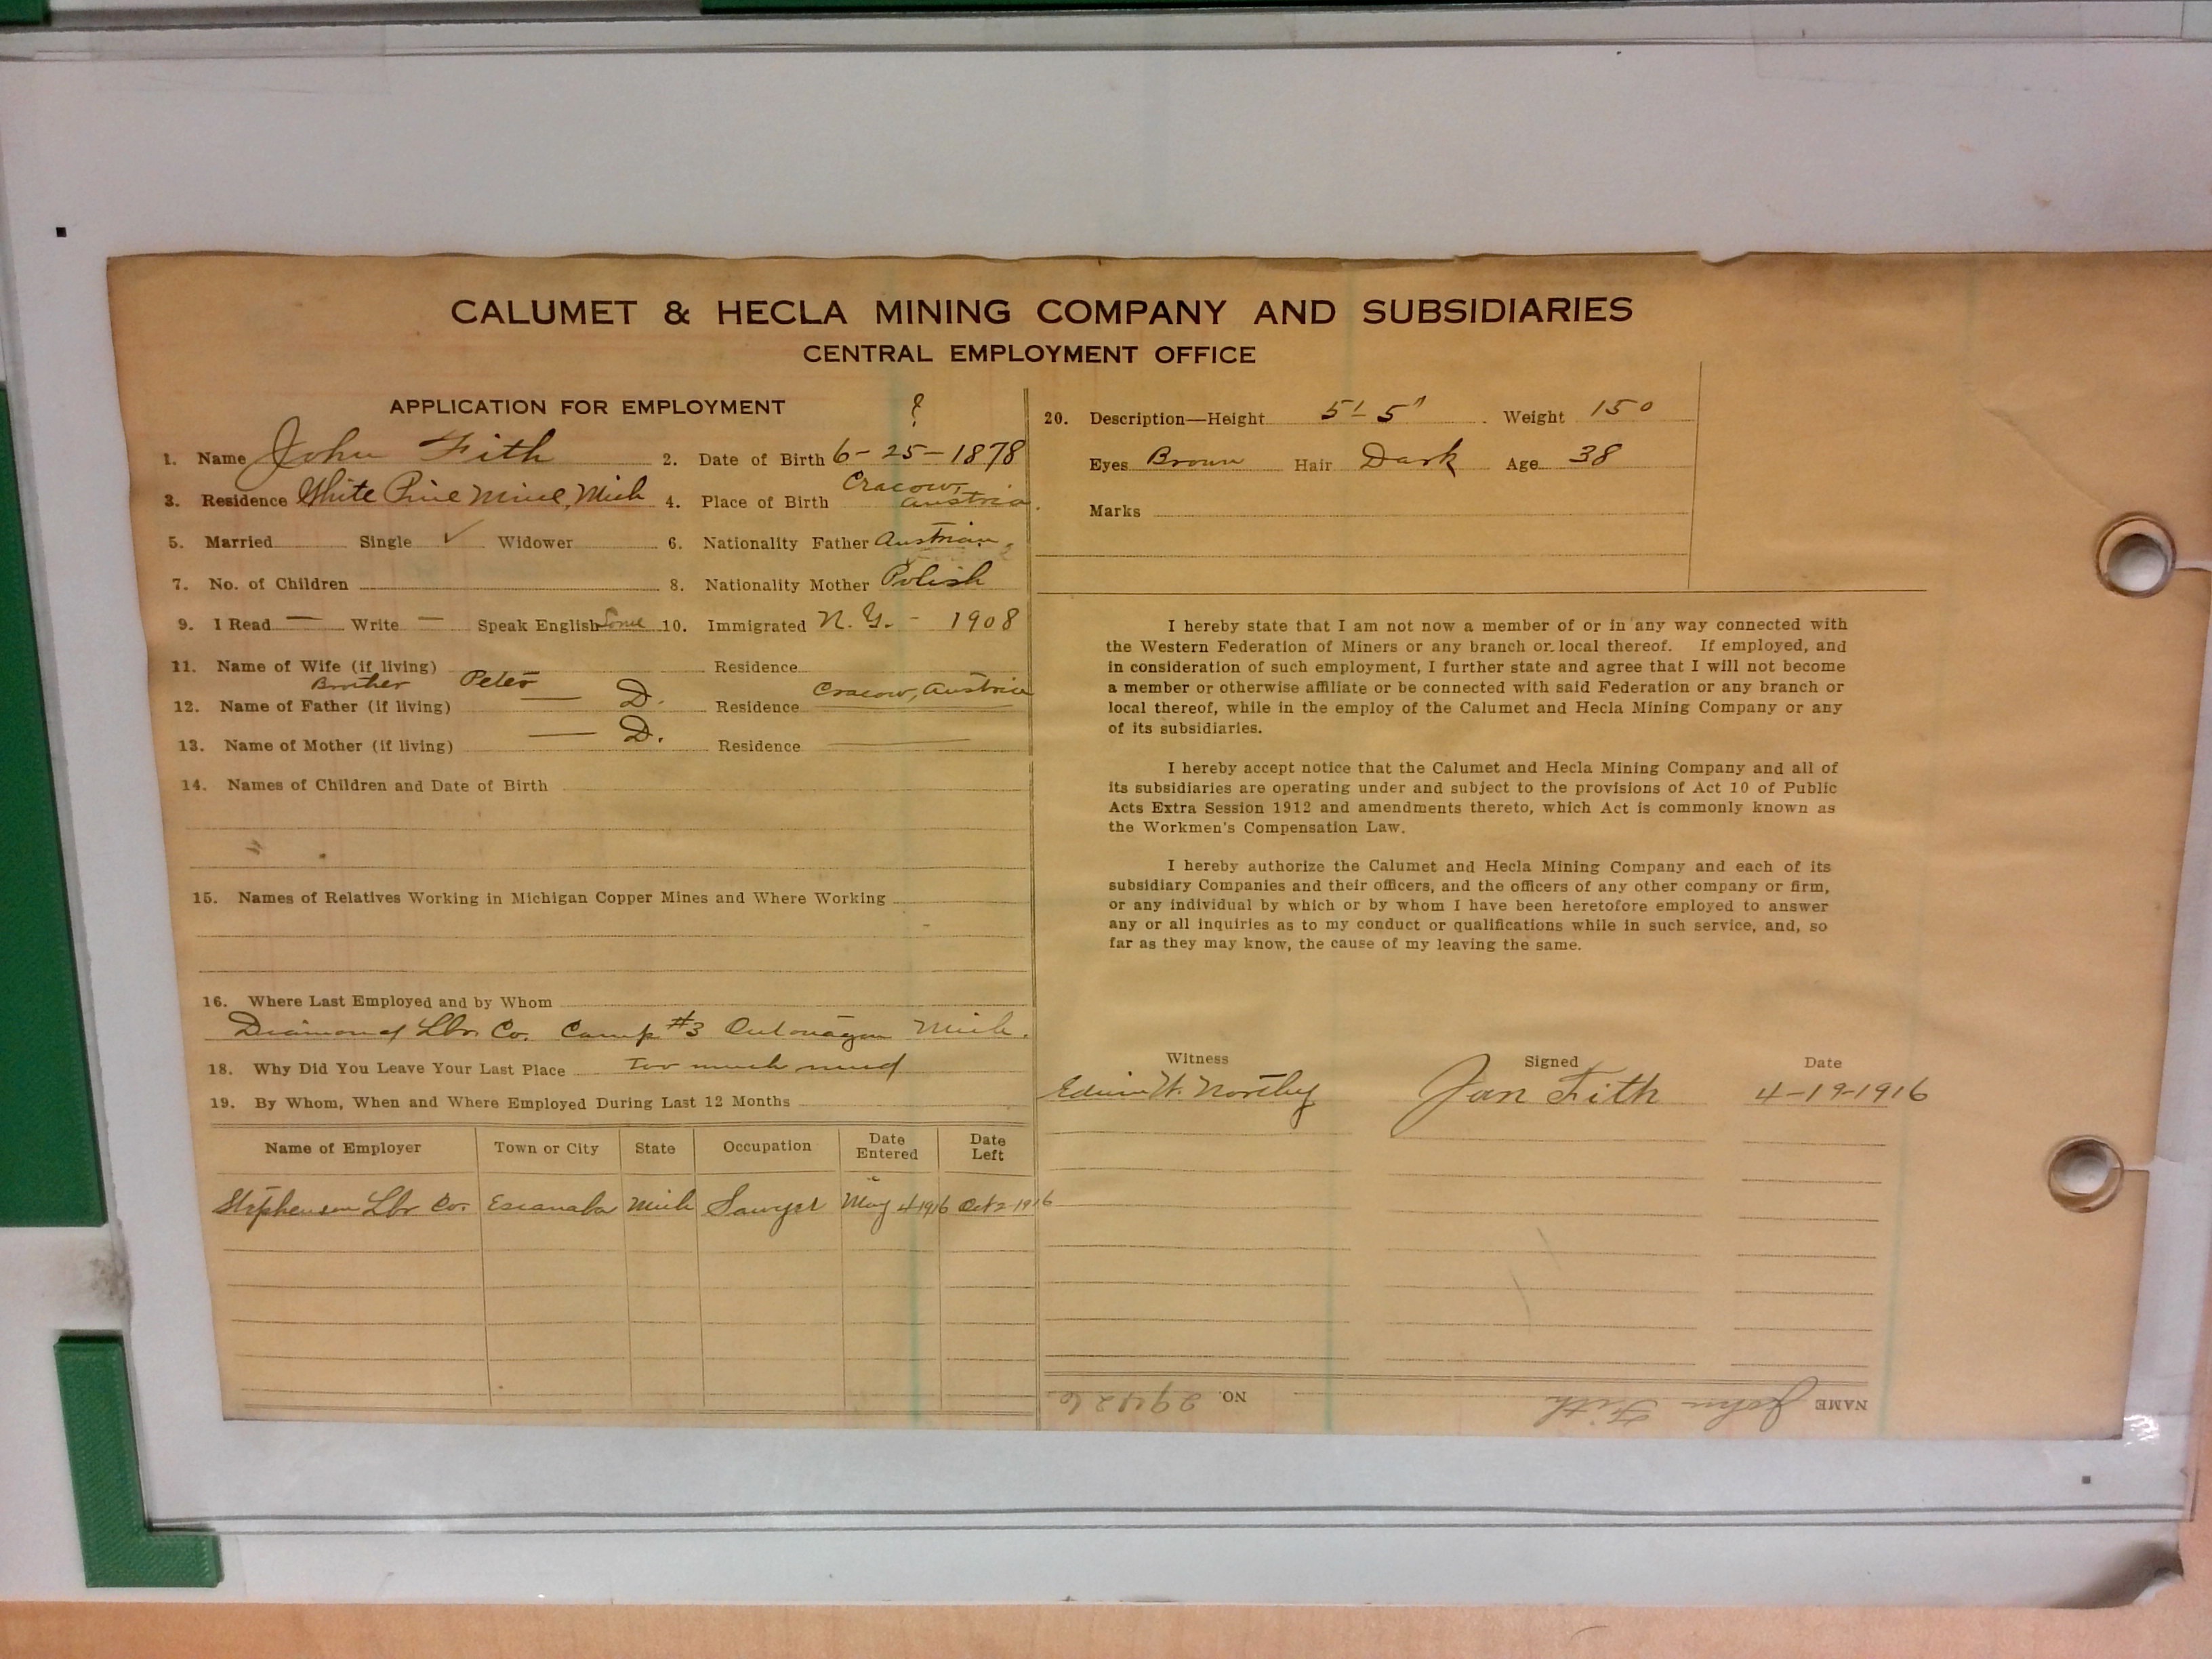 CALUMET & HECLA MINING COMPANY AND SUBSIDIARIES
CENTRAL EMPLOYMENT OFFICE
APPLICATION FOR EMPLOYMENT
?
1. Name John Fith 2. Date of Birth 6-25-1878
3. Residence White Pine Mine, Mich 4. Place of Birth Cracow, Austria.
5. Married Single ✓ Widower 6. Nationality Father Austrian
7. No. of Children 8. Nationality Mother Polish
9. I Read — Write — Speak English Some 10. Immigrated N.Y. - 1908
11. Name of Wife (if living) Residence
Brother Peter Cracow, Austria
12. Name of Father (if living) — D. Residence
13. Name of Mother (if living) — D. Residence —
14. Names of Children and Date of Birth
15. Names of Relatives Working in Michigan Copper Mines and Where Working
16. Where Last Employed and by Whom
Diamond Lbr. Co. Camp #3 Ontonagon Mich.
18. Why Did You Leave Your Last Place Too much mud
19. By Whom, When and Where Employed During Last 12 Months
Name of Employer Town or City State Occupation Date Entered Date Left
Stephenson Lbr Co. Escanaba Mich Sawyer May 4 1916 Oct 2-1916
20. Description—Height 5' 5" Weight 150
Eyes Brown Hair Dark Age 38
Marks
I hereby state that I am not now a member of or in any way connected with
the Western Federation of Miners or any branch or local thereof. If employed, and
in consideration of such employment, I further state and agree that I will not become
a member or otherwise affiliate or be connected with said Federation or any branch or
local thereof, while in the employ of the Calumet and Hecla Mining Company or any
of its subsidiaries.
I hereby accept notice that the Calumet and Hecla Mining Company and all of
its subsidiaries are operating under and subject to the provisions of Act 10 of Public
Acts Extra Session 1912 and amendments thereto, which Act is commonly known as
the Workmen's Compensation Law.
I hereby authorize the Calumet and Hecla Mining Company and each of its
subsidiary Companies and their officers, and the officers of any other company or firm,
or any individual by which or by whom I have been heretofore employed to answer
any or all inquiries as to my conduct or qualifications while in such service, and, so
far as they may know, the cause of my leaving the same.
Witness Signed Date
Edwin W. Northey Jan Fith 4-19-1916
NAME John Fith NO. 29426